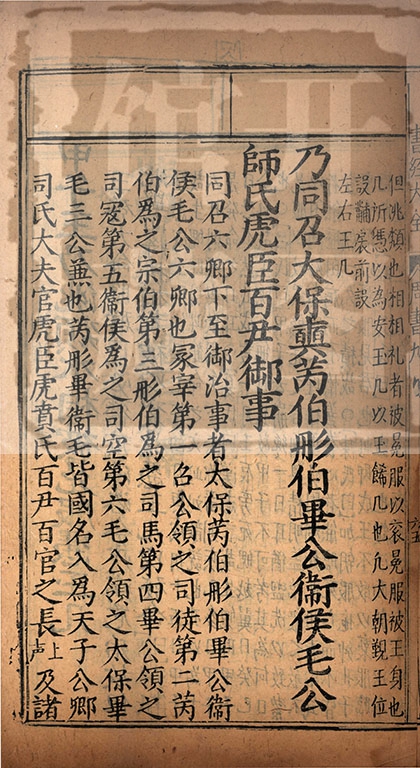 但洮頮也相相礼者被冕服以衮冕服被王身也
几所憑以為安王几以王餙几也凢大朝覲王位
設黼扆前設
左右王几
乃同召大保奭芮伯彤伯畢公衞侯毛公
師氏虎臣百尹御事
同召六卿下至御治事者太保芮伯彤伯畢公衞
侯毛公六卿也冢宰第一召公領之司徒第二芮
伯爲之宗伯第三彤伯爲之司馬第四畢公領之
司寇第五衞侯爲之司空第六毛公領之太保畢
毛三公兼也芮彤畢衞毛皆國名入爲天子公卿
司氏大夫官虎臣虎賁氏百尹百官之長上声及諸